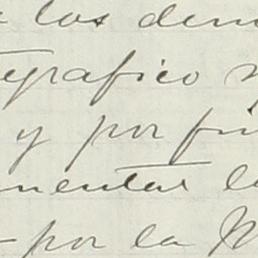 los dem
egrafico
y por fin
mentar l
por la M